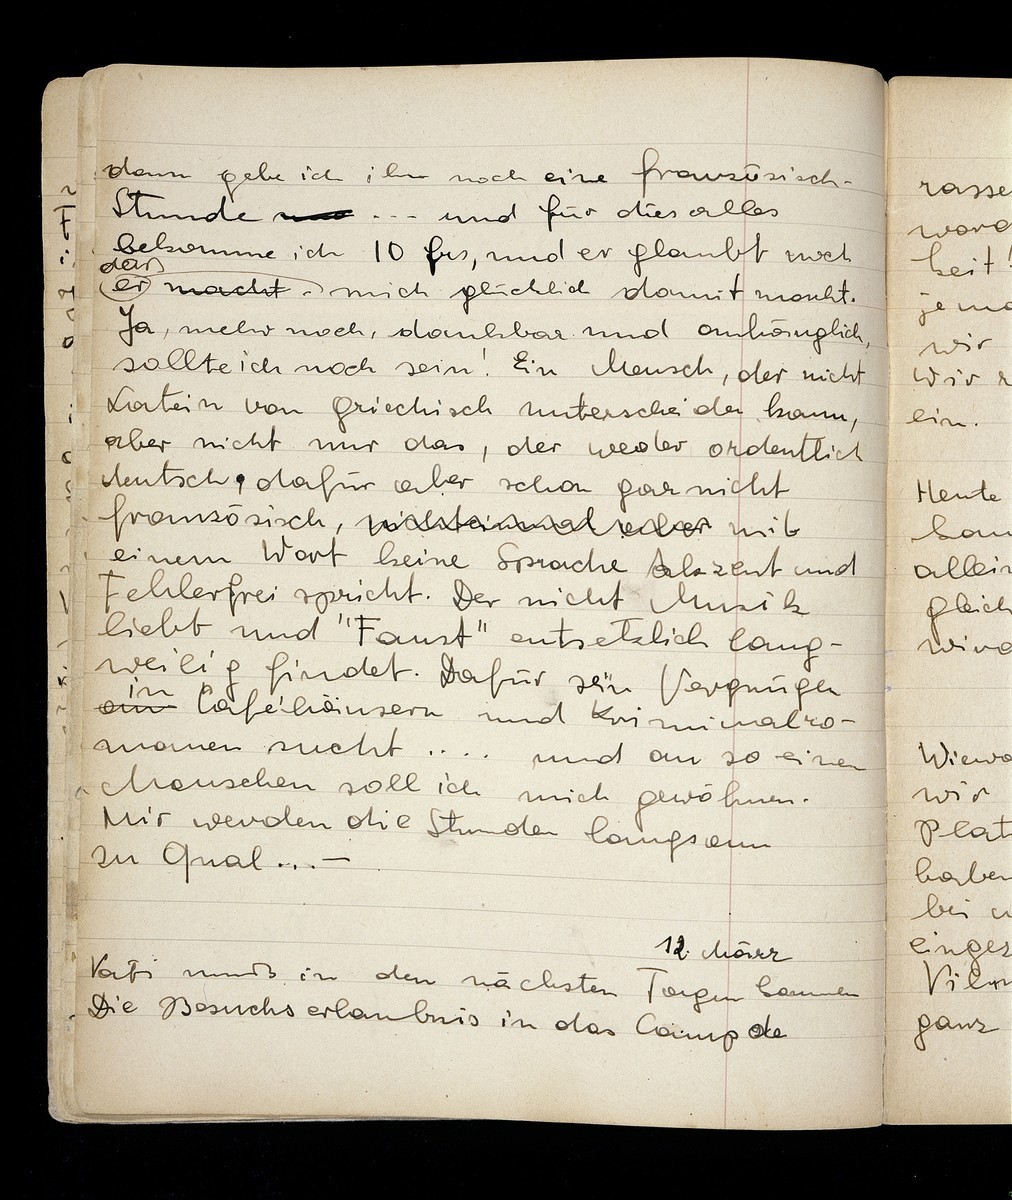 dann gebe ich ihm noch eine französisch-
Stunde --- und für dies alles
bekomme ich 10 frs, und er glaubt noch
das
er macht mich glücklich damit macht.
Ja, mehr noch, dankbar und anhänglich,
sollte ich noch sein! Ein Mensch, der nicht
Latein von griechisch unterscheiden kann,
aber nicht nur das, der weder ordentlich
deutsch, dafür aber schon gar nicht
französisch, nichteinmal aber mit
einem Wort keine Sprache Akzent und
Fehlerfrei spricht. Der nicht Musik
liebt und "Faust" entsetzlich lang-
weilig findet. Dafür sein Vergnügen
in
Caféhäusern und Kriminalro-
manen sucht .... und an so einen
Menschen soll ich mich gewöhnen.
Mir werden die Stunden langsam
zu Qual ... —
12. März
Vati muß in den nächsten Tagen kommen
Die Besuchserlaubnis in das Camp de
rasse
heit!
wir
wir
ein.
Heute
allein
gleich
wir
haben
bei
ganz